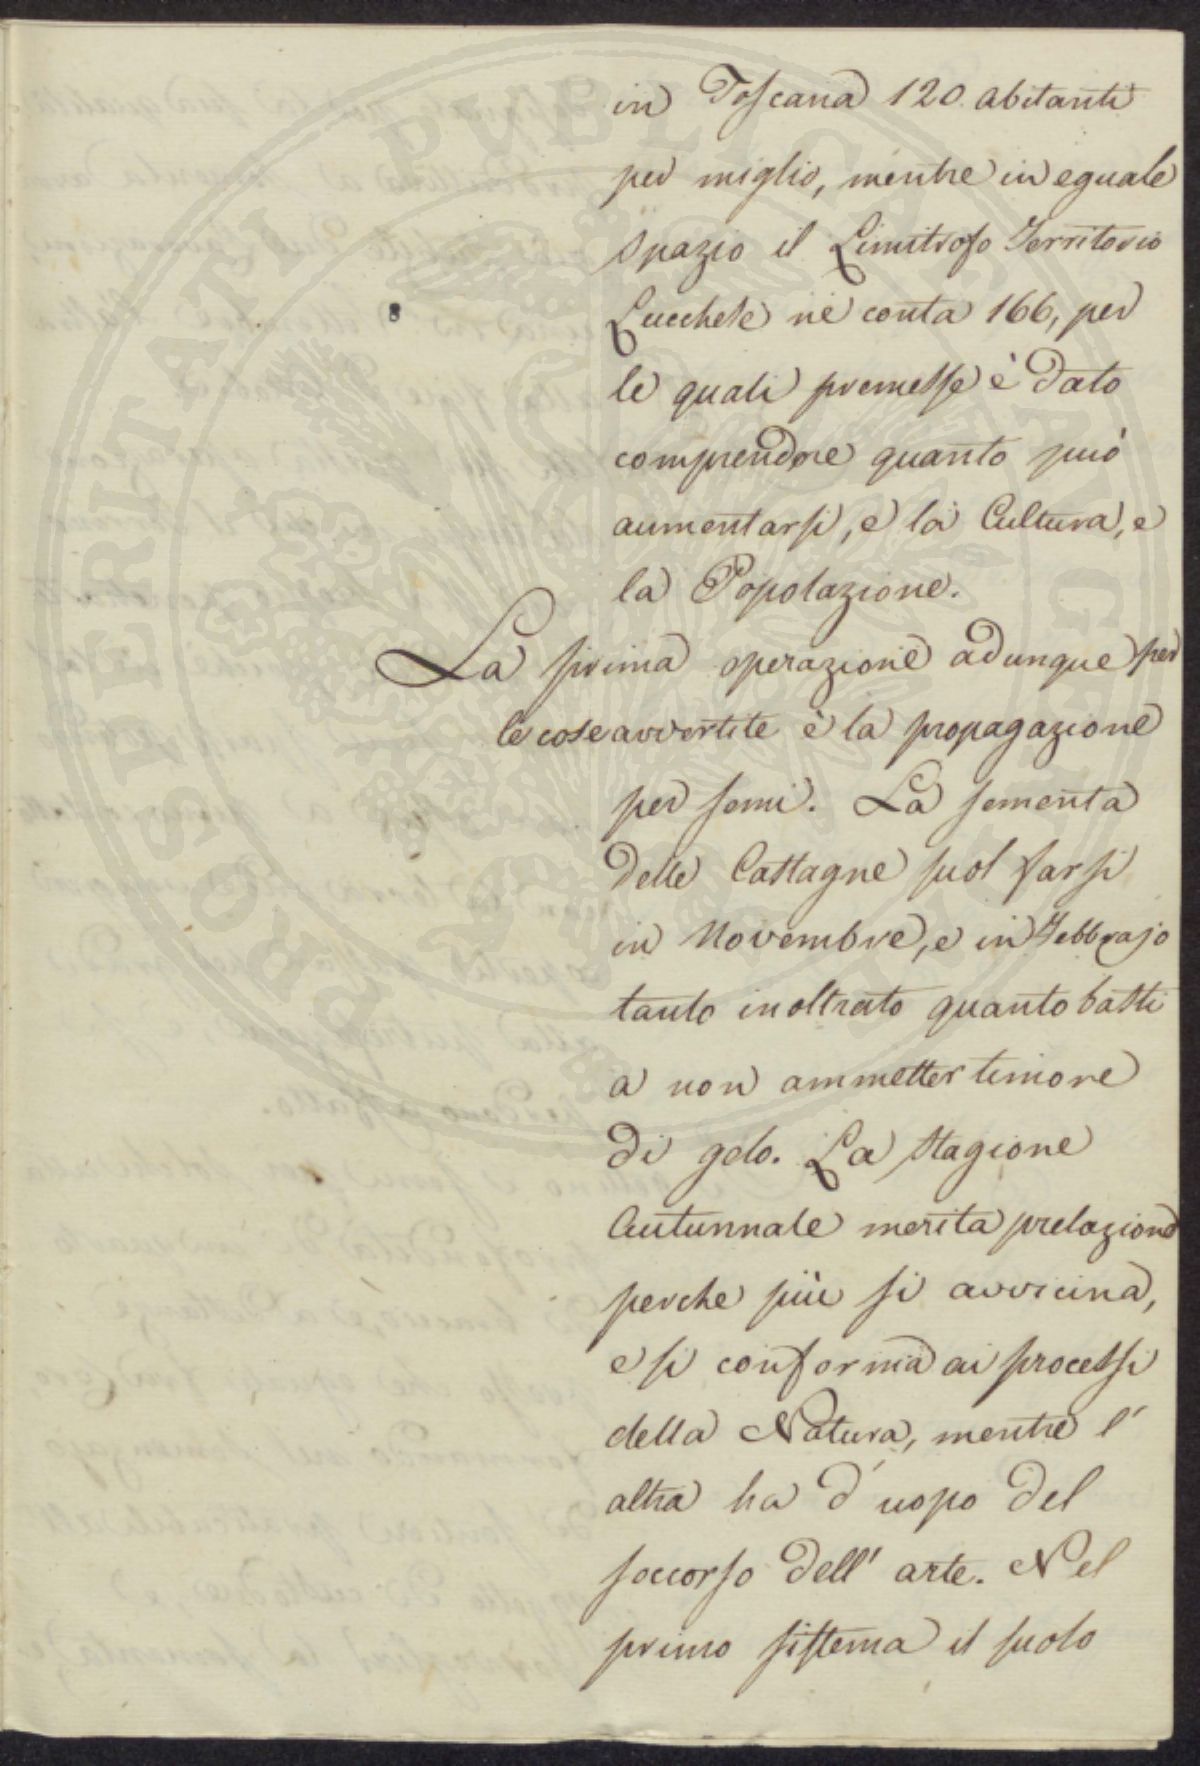 in Toscana 120. abitanti
per miglio, mentre in eguale
spazio il Limitrofo Territorio
Lucchese ne conta 166, per
le quali premesse è dato
comprendere quanto può
aumentarsi, e la Cultura, e
la Popolazione.
La prima operazione adunque per
le cose avvertite è la propagazione
per semi. La sementa
delle Castagne suol farsi
in Novembre, e in Febbrajo
tanto inoltrato quanto basti
a non ammetter timore
di gelo. La stagione
Autunnale merita prelazione
perche più si avvicina,
e si conforma ai processi
della Natura, mentre l'
altra ha d'uopo del
soccorso dell'arte. Nel
primo sistema il suolo
PROSPERITATI PUBLICAE AUGENDAE